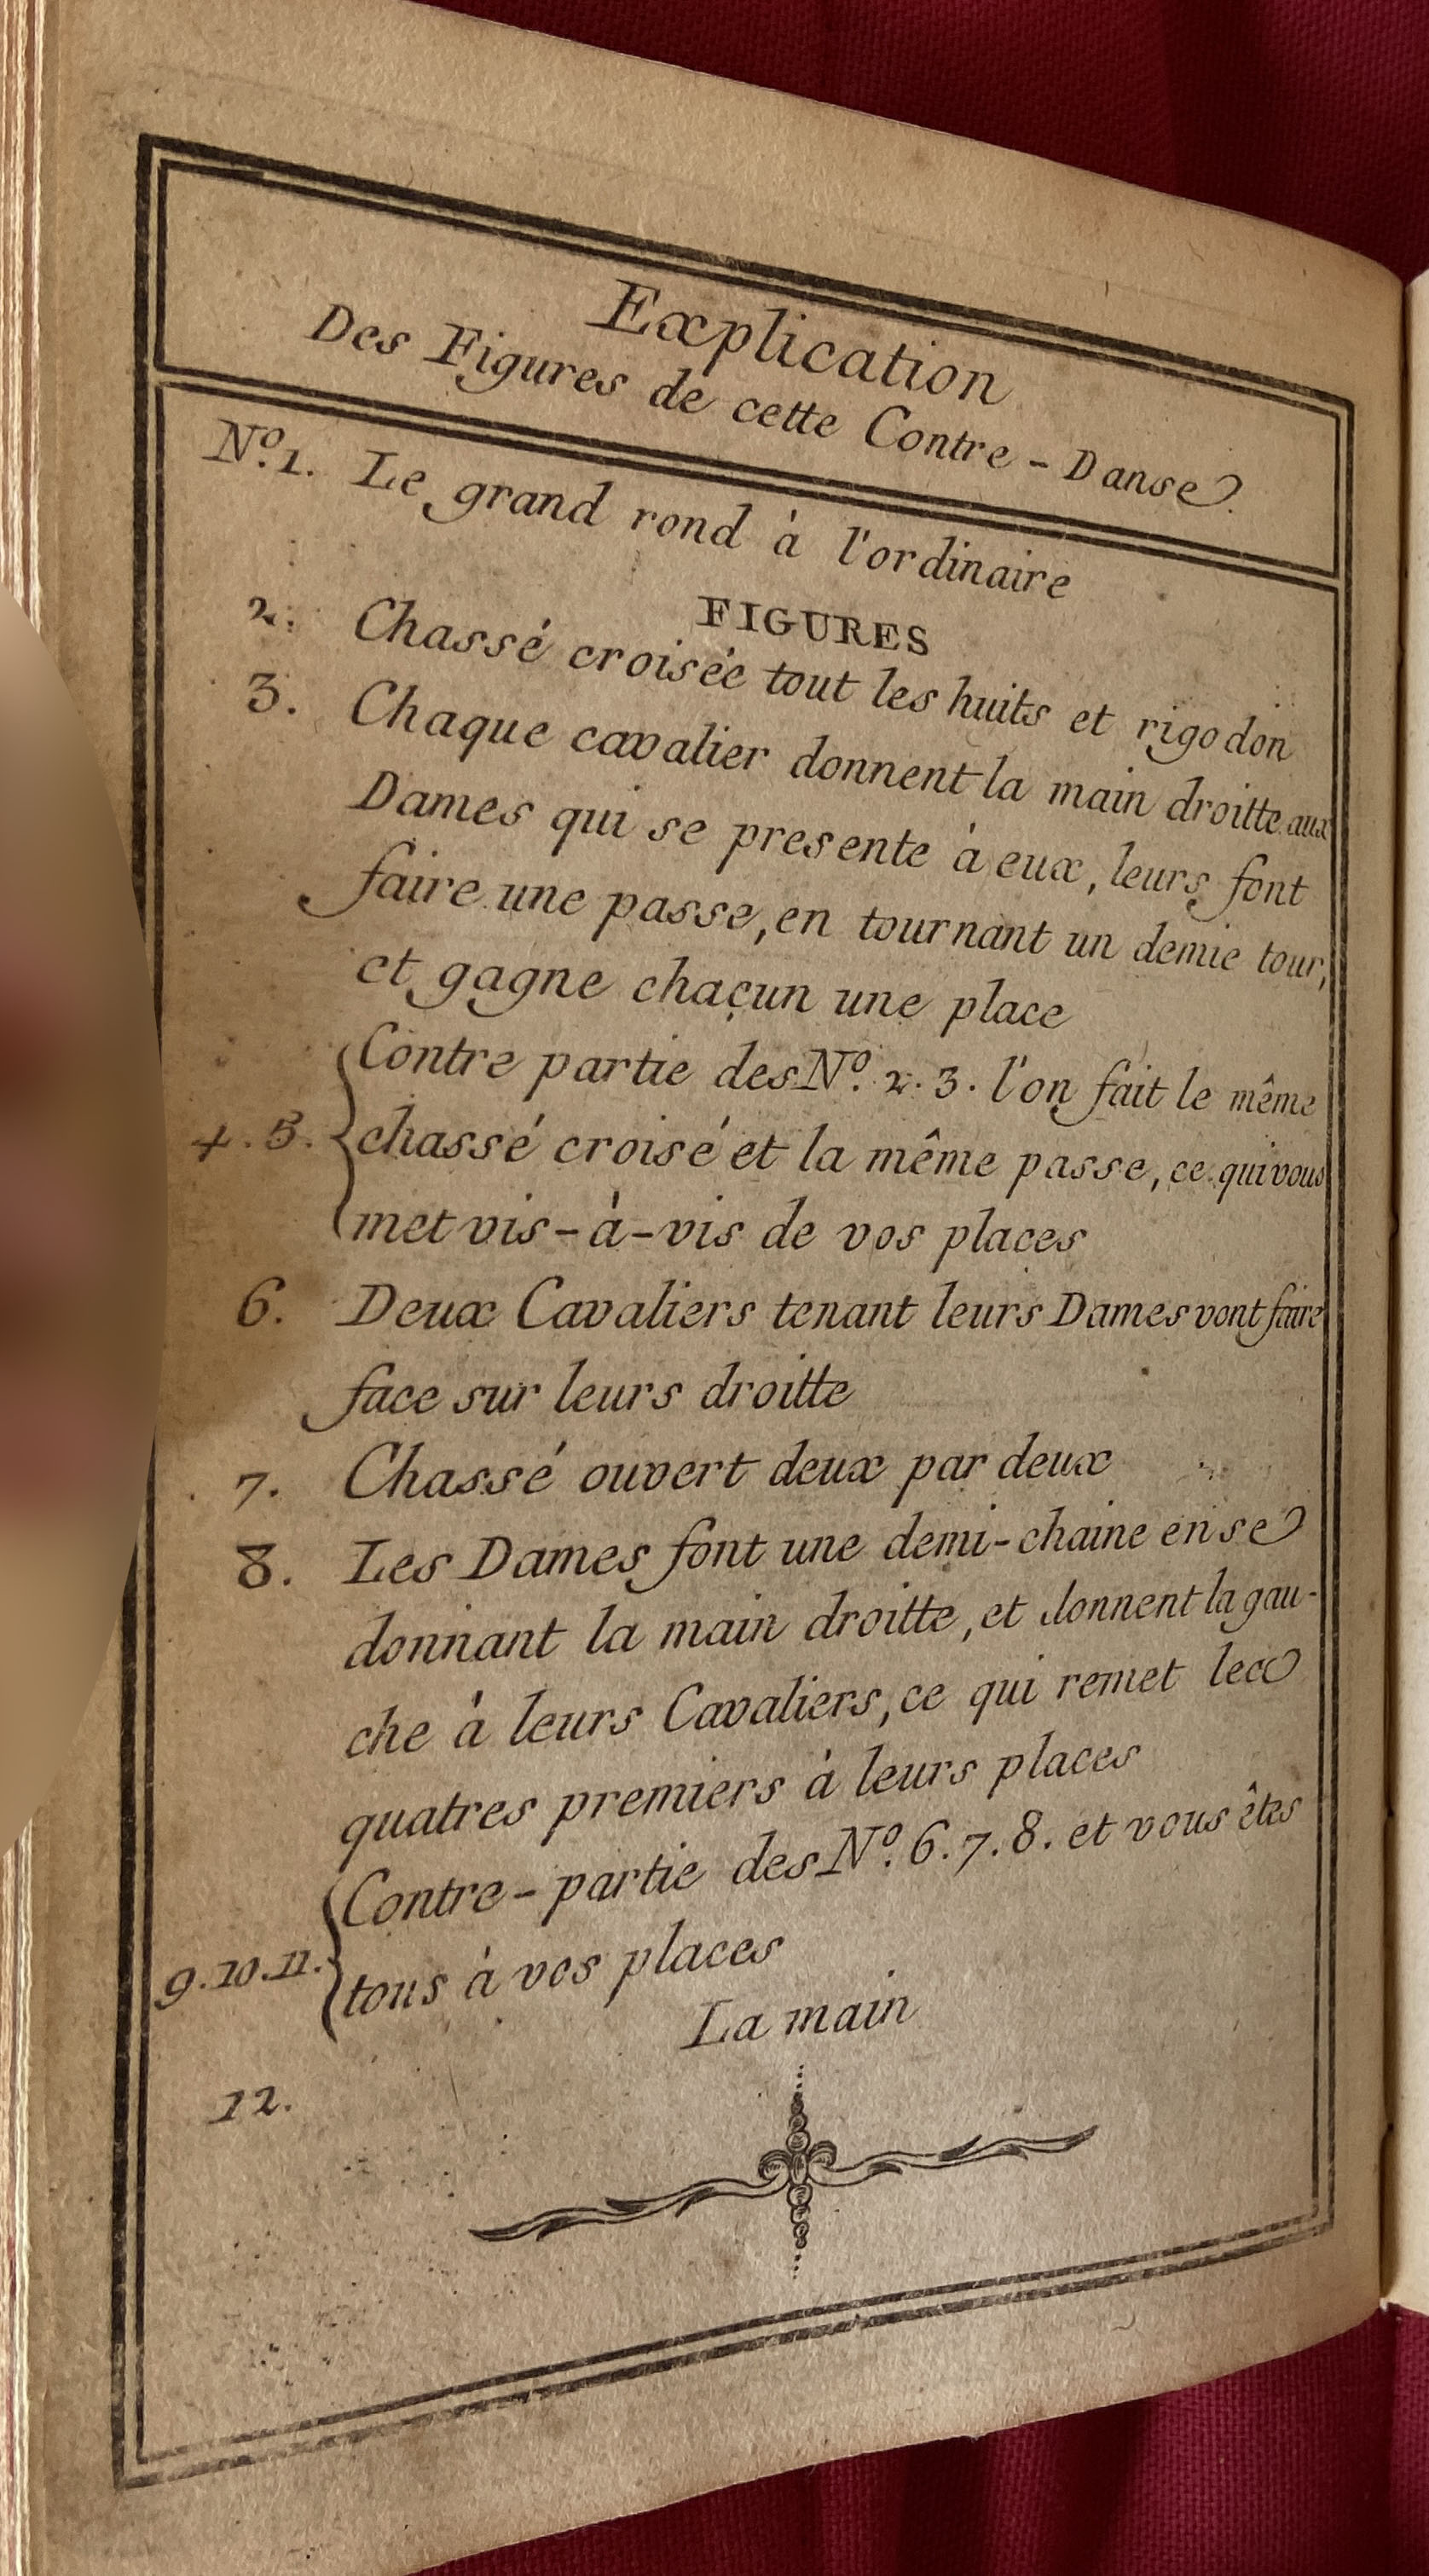 Explication
Des Figures de cette Contre-Danse.
No. 1. Le grand rond à l'ordinaire
FIGURES
2. Chassé croisée tout les huits et rigodon
3. Chaque cavalier donnent la main droitte aux
Dames qui se presente à eux, leurs font
faire une passe, en tournant un demie tour,
et gagne chaçun une place
Contre partie des No. 2. 3. l'on fait le même
4. 5. chassé croisé et la même passe, ce qui vous
met vis-à-vis de vos places
6. Deux Cavaliers tenant leurs Dames vont faire
face sur leurs droitte
7. Chassé ouvert deux par deux
8. Les Dames font une demi-chaine en se
donnant la main droitte, et donnent la gau-
che à leurs Cavaliers, ce qui remet les
quatres premiers à leurs places
Contre-partie des No. 6. 7. 8. et vous êtes
9. 10. 11. tous à vos places
La main
12.